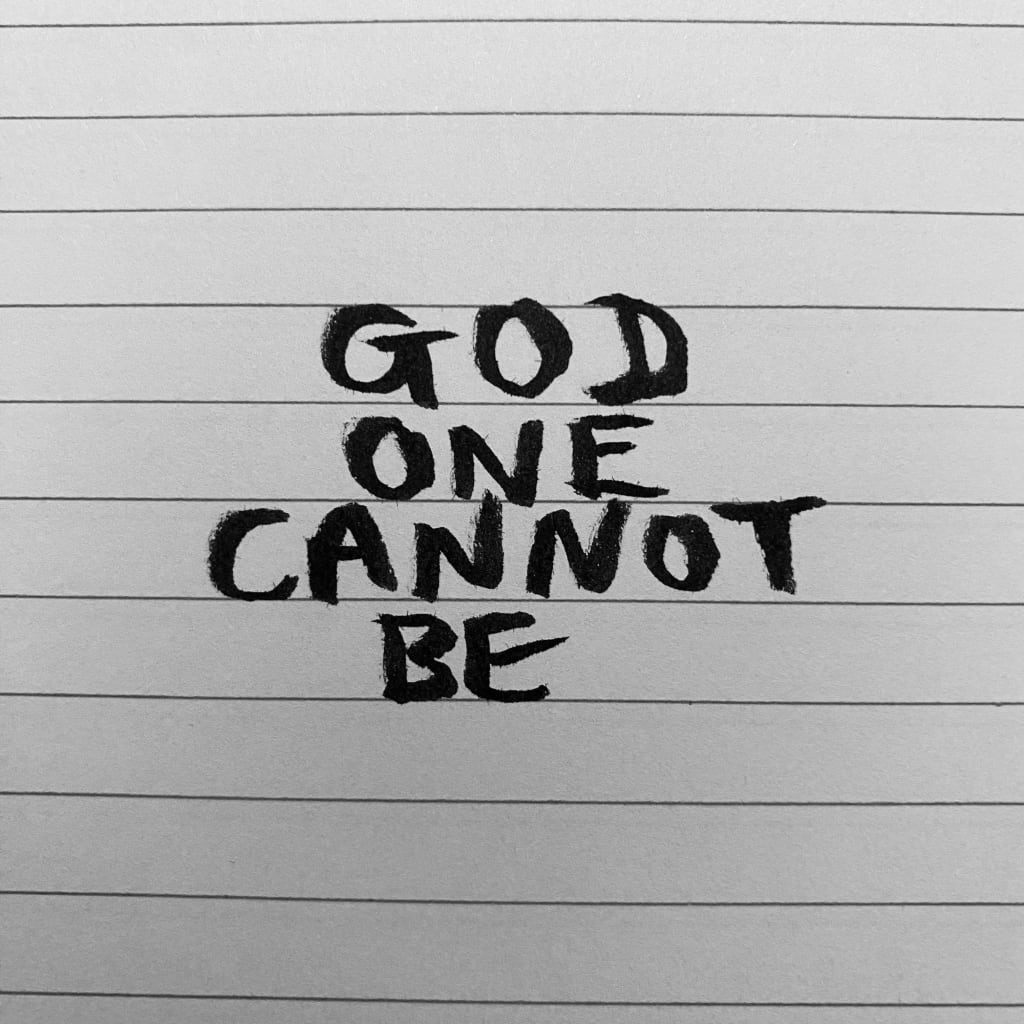 GOD
ONE
CANNOT
BE